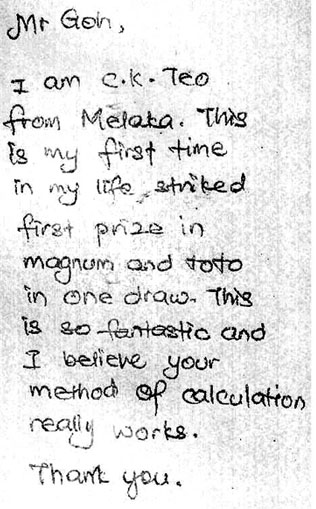 Mr Goh,
I am C.K. Teo
from Melaka. This
is my first time
in my life striked
first prize in
magnum and toto
in one draw. This
is so fantastic and
I believe your
method of calculation
really works.
Thank you.